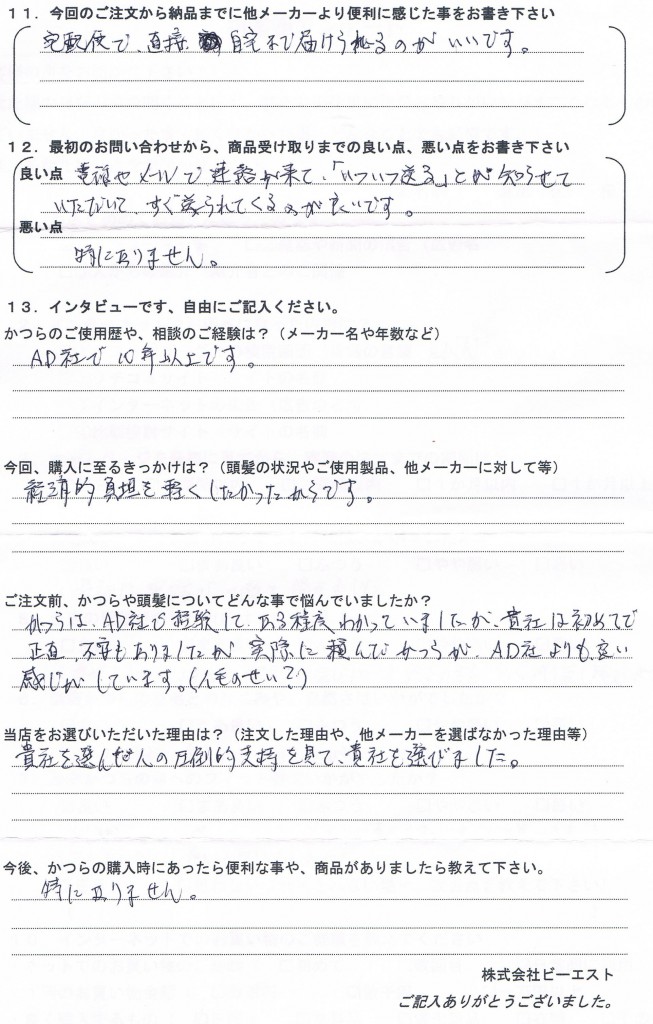 １１．今回のご注文から納品までに他メーカーより便利に感じた事をお書き下さい
宅配便で、直接、自宅まで届けられるのがいいです。
１２．最初のお問い合わせから、商品受け取りまでの良い点、悪い点をお書き下さい
良い点 電話やメールで連絡が来て、「いついつ送る」とか知らせて
いただいて、すぐ送られてくるのが良いです。
悪い点
特にありません。
１３．インタビューです、自由にご記入ください。
かつらのご使用歴や、相談のご経験は？（メーカー名や年数など）
AD社で10年以上です。
今回、購入に至るきっかけは？（頭髪の状況やご使用製品、他メーカーに対して等）
経済的負担を軽くしたかったからです。
ご注文前、かつらや頭髪についてどんな事で悩んでいましたか？
かつらは、AD社で経験して、ある程度わかっていましたが、貴社は初めてで
正直、不安もありましたが、実際に頼んでかつらが、AD社よりも良い
感じがしています。（人毛のせい？）
当店をお選びいただいた理由は？（注文した理由や、他メーカーを選ばなかった理由等）
貴社を選んだ人の圧倒的支持を見て、貴社を選びました。
今後、かつらの購入時にあったら便利な事や、商品がありましたら教えて下さい。
特にありません。
株式会社ビーエスト
ご記入ありがとうございました。